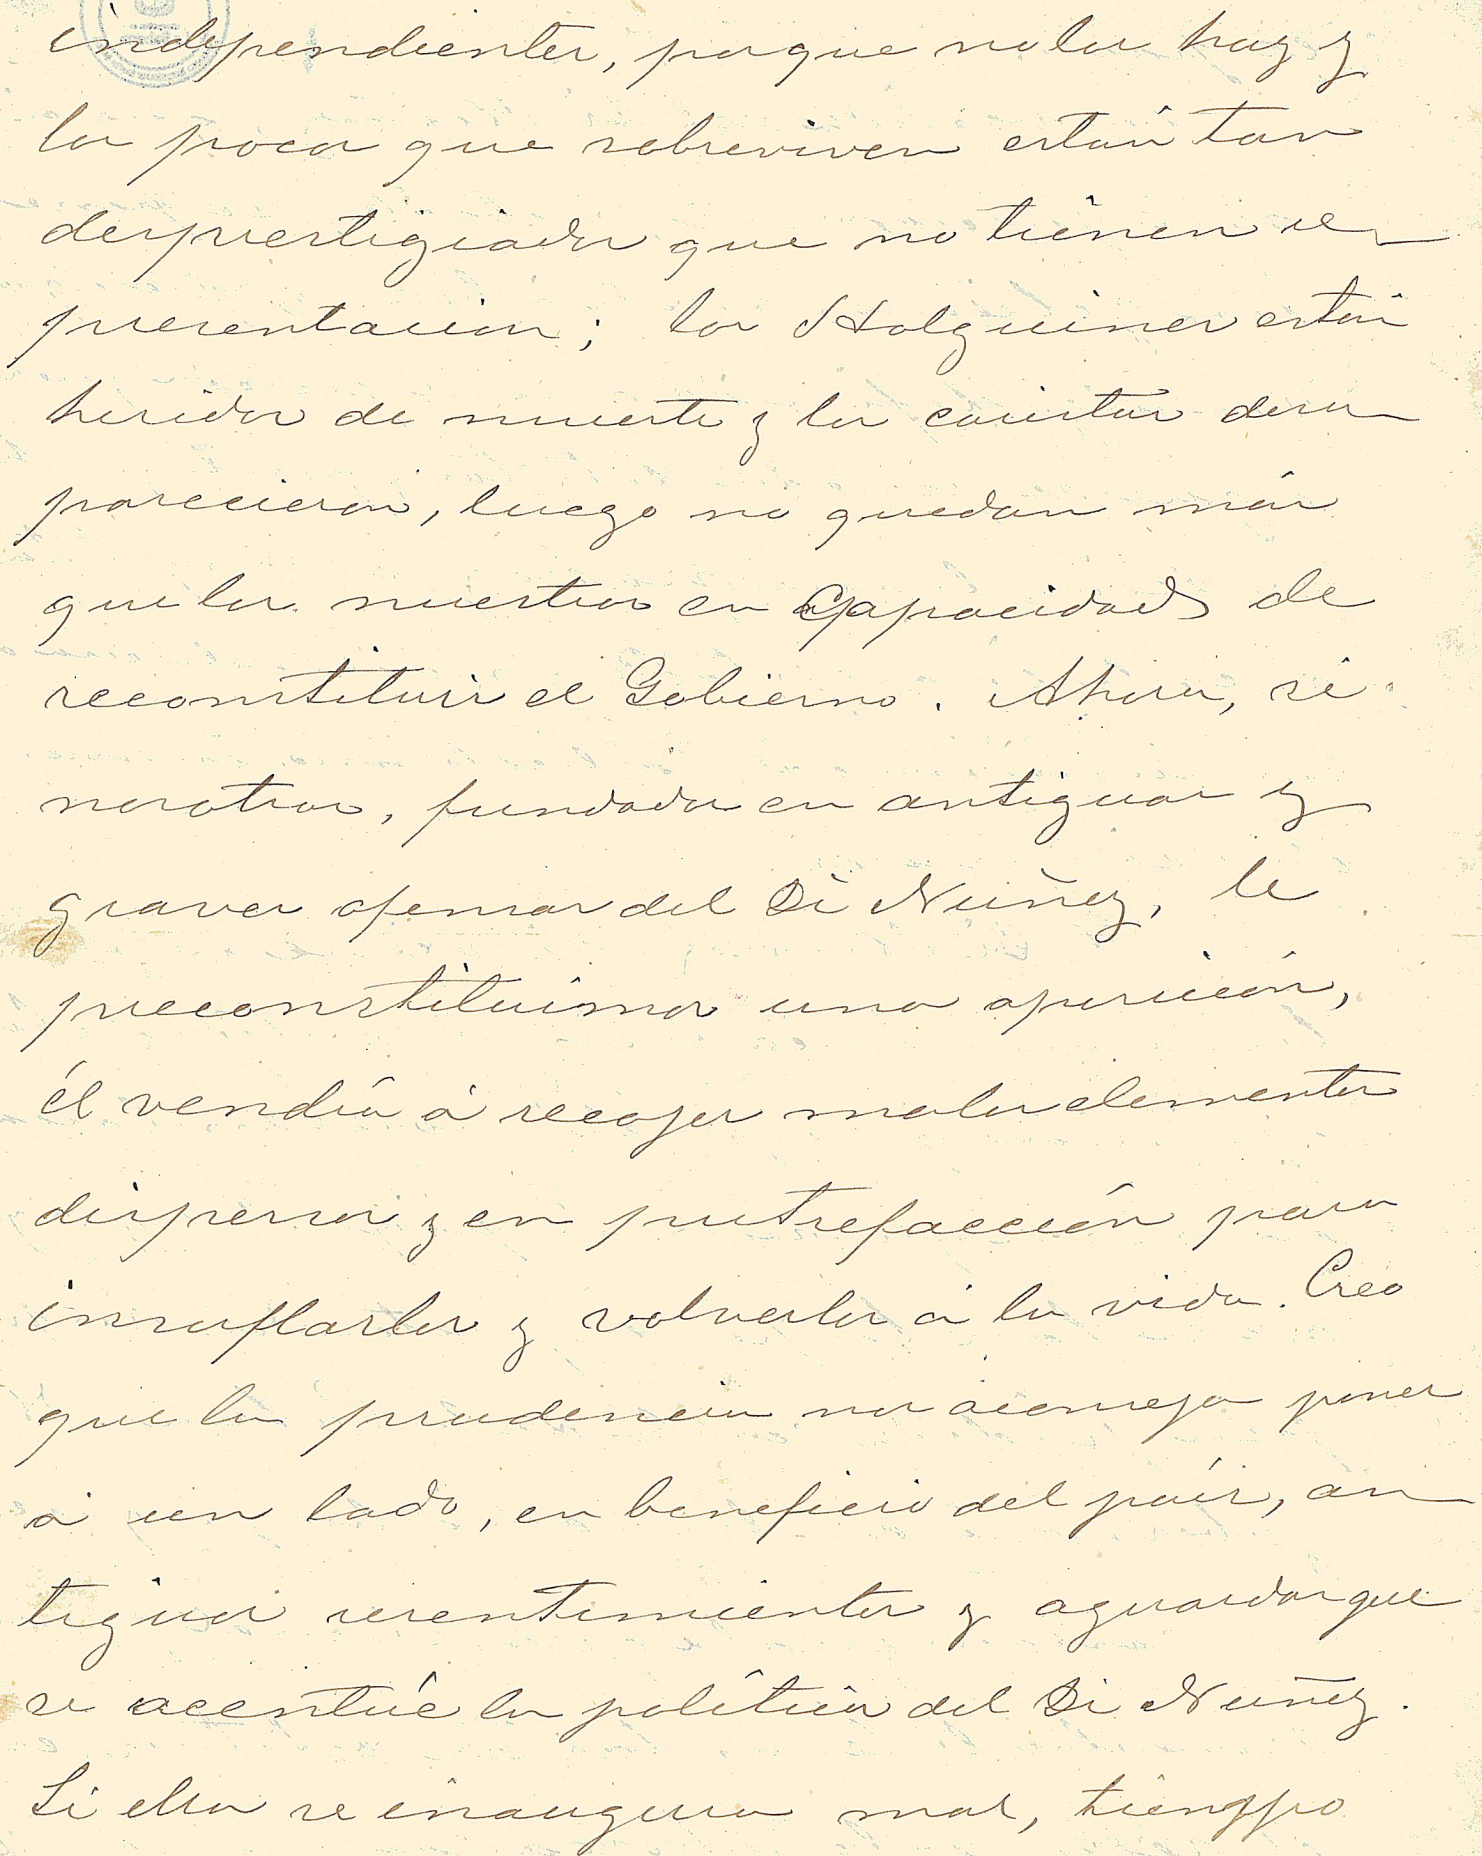 independientes, porque no los hay y
los pocos que sobreviven están tan
desprestigiados que no tienen re-
presentacion; los Holguines están
heridos de muerte y los caistas desa-
parecieron, luego no quedan más
que los nuestros en capacidad de
reconstituir el Gobierno. Ahora, si
nosotros, fundados en antiguas y
graves ofensas del Dr Nuñez, le
preconstituimos una oposición,
él vendrá á recojer malos elementos
dispersos y en putrefacción para
insuflarlos y volverlos á la vida. Creo
que la prudencia nos aconseja poner
á un lado, en beneficio del país, an-
tiguos resentimientos y aguardar que
se acentúe la política del Dr Nuñez.
Si ella se inaugura mal, tiempo